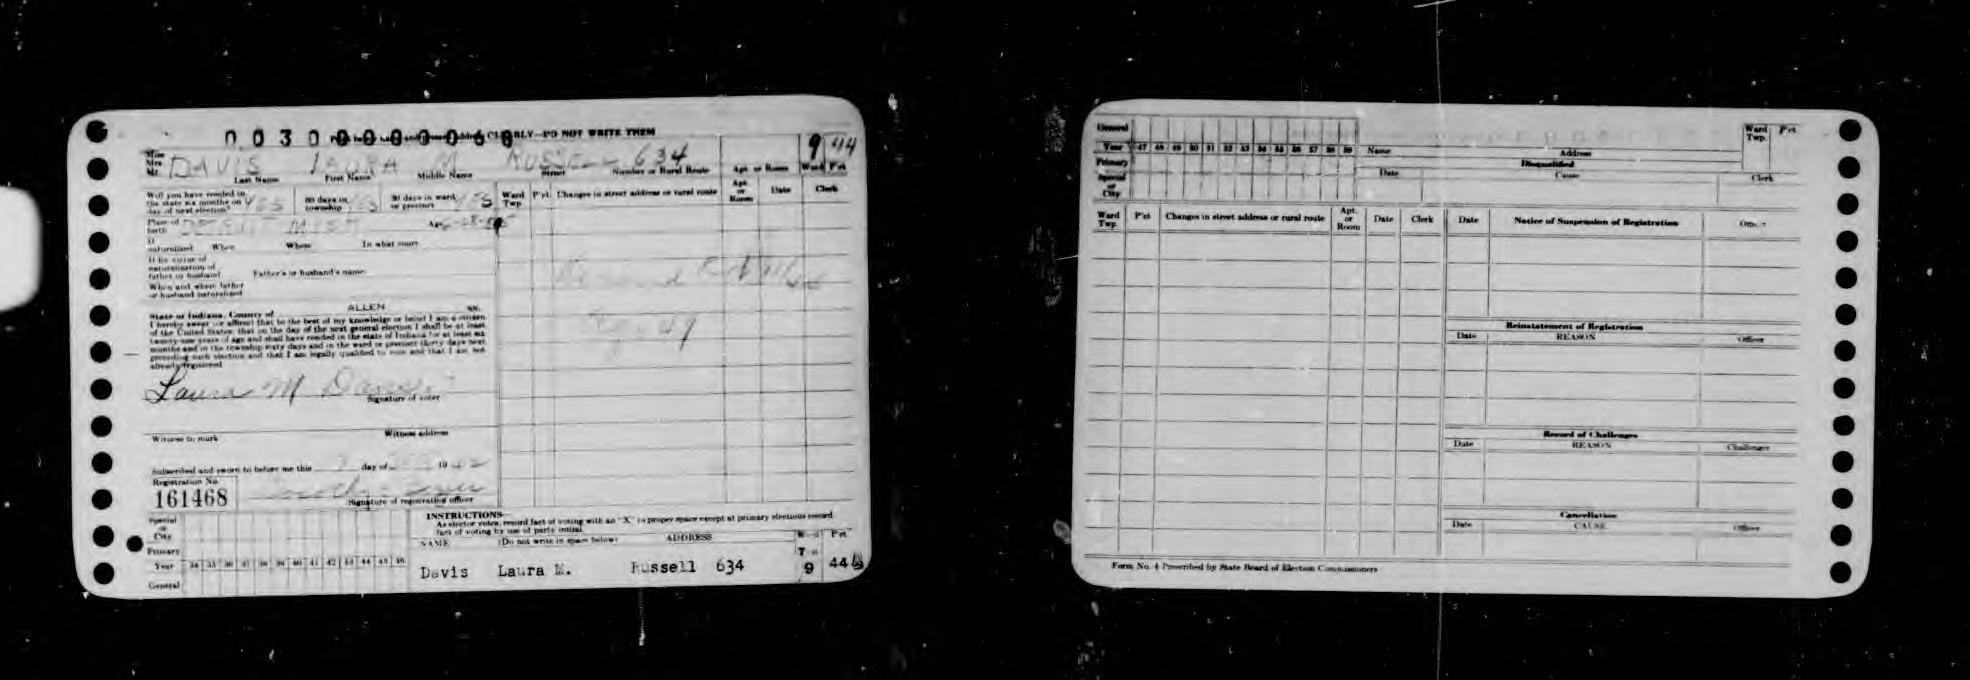 0030000006
CLEARLY—DO NOT WRITE THEM
9 44
Miss Mrs. Mr. DAVIS LAURA M. RUSSELL 634
Last Name First Name Middle Name Street Number or Rural Route Apt. or Room Ward Pct
Will you have resided in the state six months on day of next election? YES 60 days in township YES 30 days in ward or precinct YES
Ward Twp. P'ct. Changes in street address or rural route Apt. or Room Date Clerk
Place of birth DETROIT MICH Age
If naturalized When Where In what court
If by virtue of naturalization of father or husband Father's or husband's name
When and where father or husband naturalized
State of Indiana, County of ALLEN ss.
I hereby swear (or affirm) that to the best of my knowledge or belief I am a citizen
of the United States; that on the day of the next general election I shall be at least
twenty-one years of age and shall have resided in the state of Indiana for at least six
months and in the township sixty days and in the ward or precinct thirty days next
preceding such election and that I am legally qualified to vote and that I am not
already registered.
Laura M Davis
Signature of voter
Witness to mark Witness address
Subscribed and sworn to before me this day of 1942
Registration No.
161468
Signature of registration officer
INSTRUCTIONS—
As elector votes, record fact of voting with an "X" in proper space except at primary elections record
fact of voting by use of party initial.
NAME (Do not write in space below) ADDRESS Ward Twp. Pct
Davis Laura M. Russell 634 9 44
Special or City
Primary
Year 34 35 36 37 38 39 40 41 42 43 44 45 46
General
General
Year 47 48 49 50 51 52 53 54 55 56 57 58 59
Primary
Special or City
Name Address Ward Twp. P'ct
Disqualified
Date Cause Clerk
Ward Twp. P'ct Changes in street address or rural route Apt. or Room Date Clerk
Date Notice of Suspension of Registration Officer
Reinstatement of Registration
Date REASON Officer
Record of Challenges
Date REASON Challenger
Cancellation
Date CAUSE Officer
Form No. 4 Prescribed by State Board of Election Commissioners